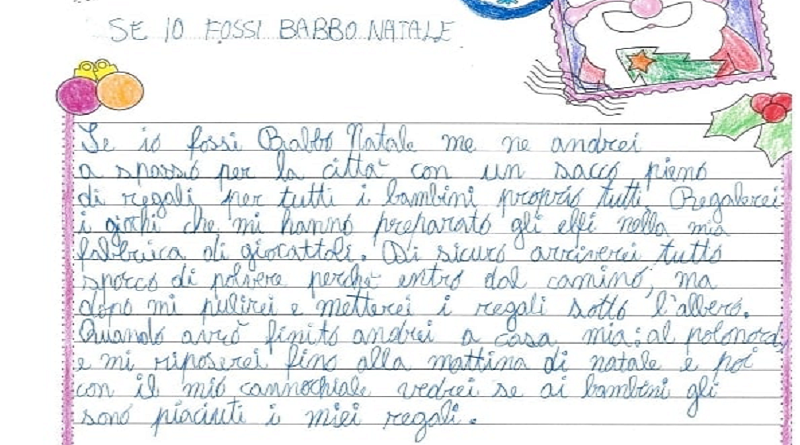 SE IO FOSSI BABBO NATALE
Se io fossi Babbo Natale me ne andrei
a spasso per la città con un sacco pieno
di regali per tutti i bambini proprio tutti Regalerei
i giochi che mi hanno preparato gli elfi nella mia
fabbrica di giocattoli. Di sicuro arriverei tutto
sporco di polvere perchè entro dal camino, ma
dopo mi pulirei e metterei i regali sotto l'albero.
Quando avrò finito andrei a casa mia: al polonord,
e mi riposerei fino alla mattina di natale e poi
con il mio cannochiale vedrei se ai bambini gli
sono piaciuti i miei regali.